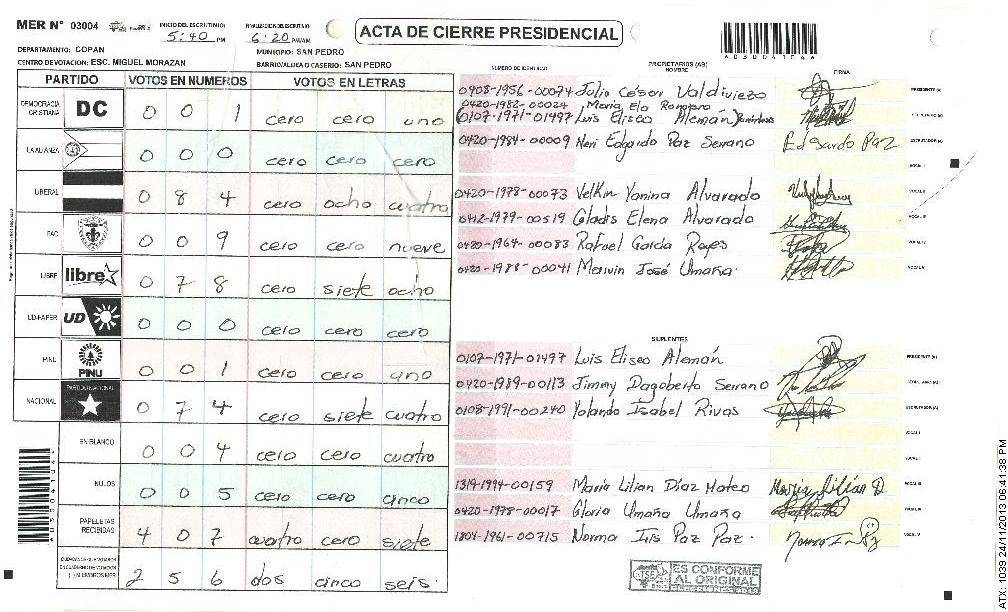 MER N° 03004
INICIO DEL ESCRUTINIO: 5:40 PM
FINALIZACION DEL ESCRUTINIO 6:20 PM/AM
ACTA DE CIERRE PRESIDENCIAL
A030041044
DEPARTAMENTO: COPAN
MUNICIPIO: SAN PEDRO
CENTRO DE VOTACION: ESC. MIGUEL MORAZAN
BARRIO/ALDEA O CASERIO: SAN PEDRO
PARTIDO VOTOS EN NUMEROS VOTOS EN LETRAS
DEMOCRACIA CRISTIANA DC 0 0 1 cero cero uno
LA ALIANZA 0 0 0 cero cero cero
LIBERAL 0 8 4 cero ocho cuatro
PAC 0 0 9 cero cero nueve
LIBRE libre 0 7 8 cero siete ocho
UD-FAPER UD 0 0 0 cero cero cero
PINU PINU 0 0 1 cero cero uno
NACIONAL PARTIDO NACIONAL 0 7 4 cero siete cuatro
EN BLANCO 0 0 4 cero cero cuatro
NULOS 0 0 5 cero cero cinco
PAPELETAS RECIBIDAS 4 0 7 cuatro cero siete
2 5 6 dos cinco seis.
NUMERO DE IDENTIDAD PROPIETARIOS (AS) NOMBRE FIRMA
0408-1956-00074 Julio César Valdiviezo PRESIDENTE (A)
0420-1982-00024 Maria Ela Romero
0107-1971-01497 Luis Eliseo Alemán SECRETARIO (A)
0420-1984-00009 Neri Edgardo Paz Serrano Edgardo Paz ESCRUTADOR (A)
VOCAL I
0420-1978-00073 Velkin Yanina Alvarado VOCAL II
0412-1979-00519 Gladis Elena Alvarado VOCAL III
0420-1964-00083 Rafael Garcia Reyes VOCAL IV
0420-1988-00041 Marvin José Umaña. VOCAL V
SUPLENTES
0107-1971-01497 Luis Eliseo Alemán PRESIDENTE (A)
0420-1989-00113 Jimmy Dagoberto Serrano SECRETARIO (A)
0108-1991-00240 Yolanda Isabel Rivas ESCRUTADOR (A)
VOCAL I
VOCAL II
1319-1994-00159 Maria Lilian Díaz Mateo Maria Lilian D. VOCAL III
0420-1978-00017 Gloria Umaña Umaña VOCAL IV
1804-1961-00715 Norma Iris Paz Paz. VOCAL V
TSE
ES CONFORME AL ORIGINAL
ELECCIONES 2013
A030041044
ATX: 1039 24/11/2013 06:41:38 PM